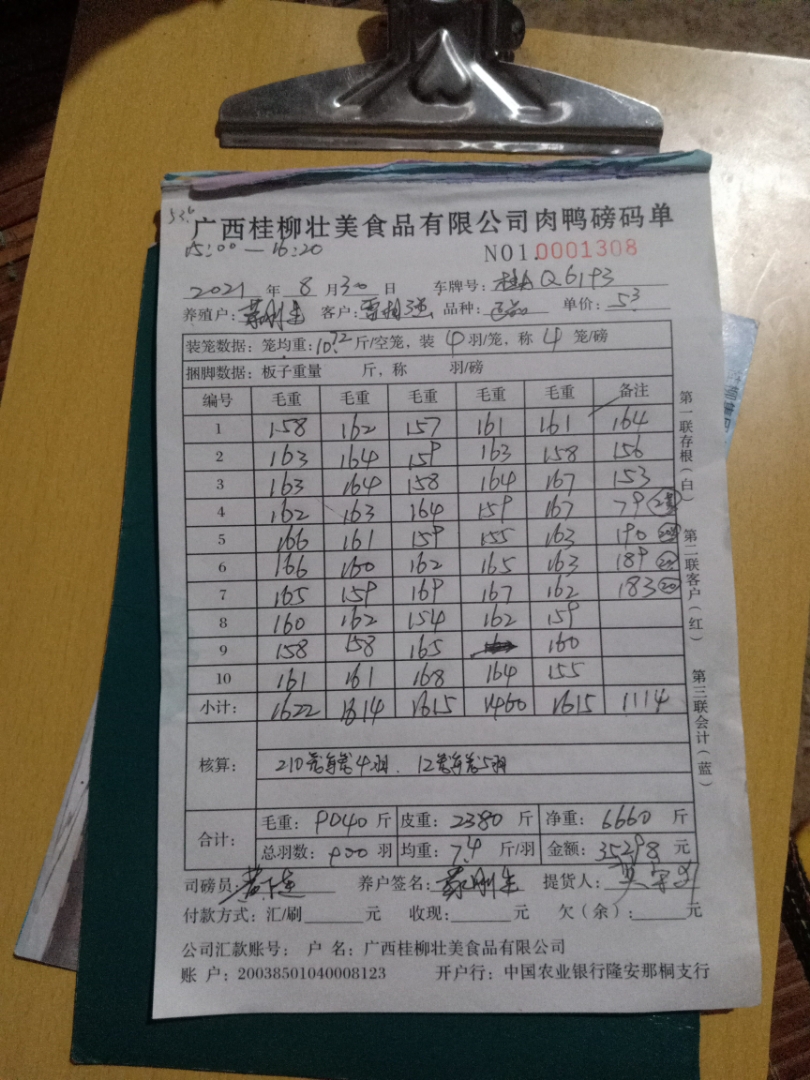 53.
广西桂柳壮美食品有限公司肉鸭磅码单
15:00 — 16:20
NO1.0001308
2021 年 8 月 30 日 车牌号: 桂A Q6193
养殖户: 客户: 品种: 单价: 5.3
装笼数据: 笼均重: 10.72 斤/空笼, 装 4 羽/笼, 称 4 笼/磅
捆脚数据: 板子重量 斤, 称 羽/磅
编号 毛重 毛重 毛重 毛重 毛重 备注
1 158 162 157 161 161 164
2 163 164 159 163 158 156
3 163 164 158 164 167 153
4 162 163 164 159 167 79
5 166 161 159 155 163 190
6 166 160 162 165 163 189
7 165 159 169 167 162 183
8 160 162 154 162 159
9 158 158 165 160
10 161 161 168 164 155
小计: 1622 1614 1615 1460 1615 1114
核算: 210笼每笼4羽. 12笼每笼5羽
合计: 毛重: 9040 斤 皮重: 2380 斤 净重: 6660 斤
总羽数: 900 羽 均重: 7.4 斤/羽 金额: 35298 元
司磅员: 养户签名: 提货人:
付款方式: 汇/刷 元 收现: 元 欠(余): 元
公司汇款账号: 户 名: 广西桂柳壮美食品有限公司
账 户: 20038501040008123 开户行: 中国农业银行隆安那桐支行
第一联存根(白)
第二联客户(红)
第三联会计(蓝)